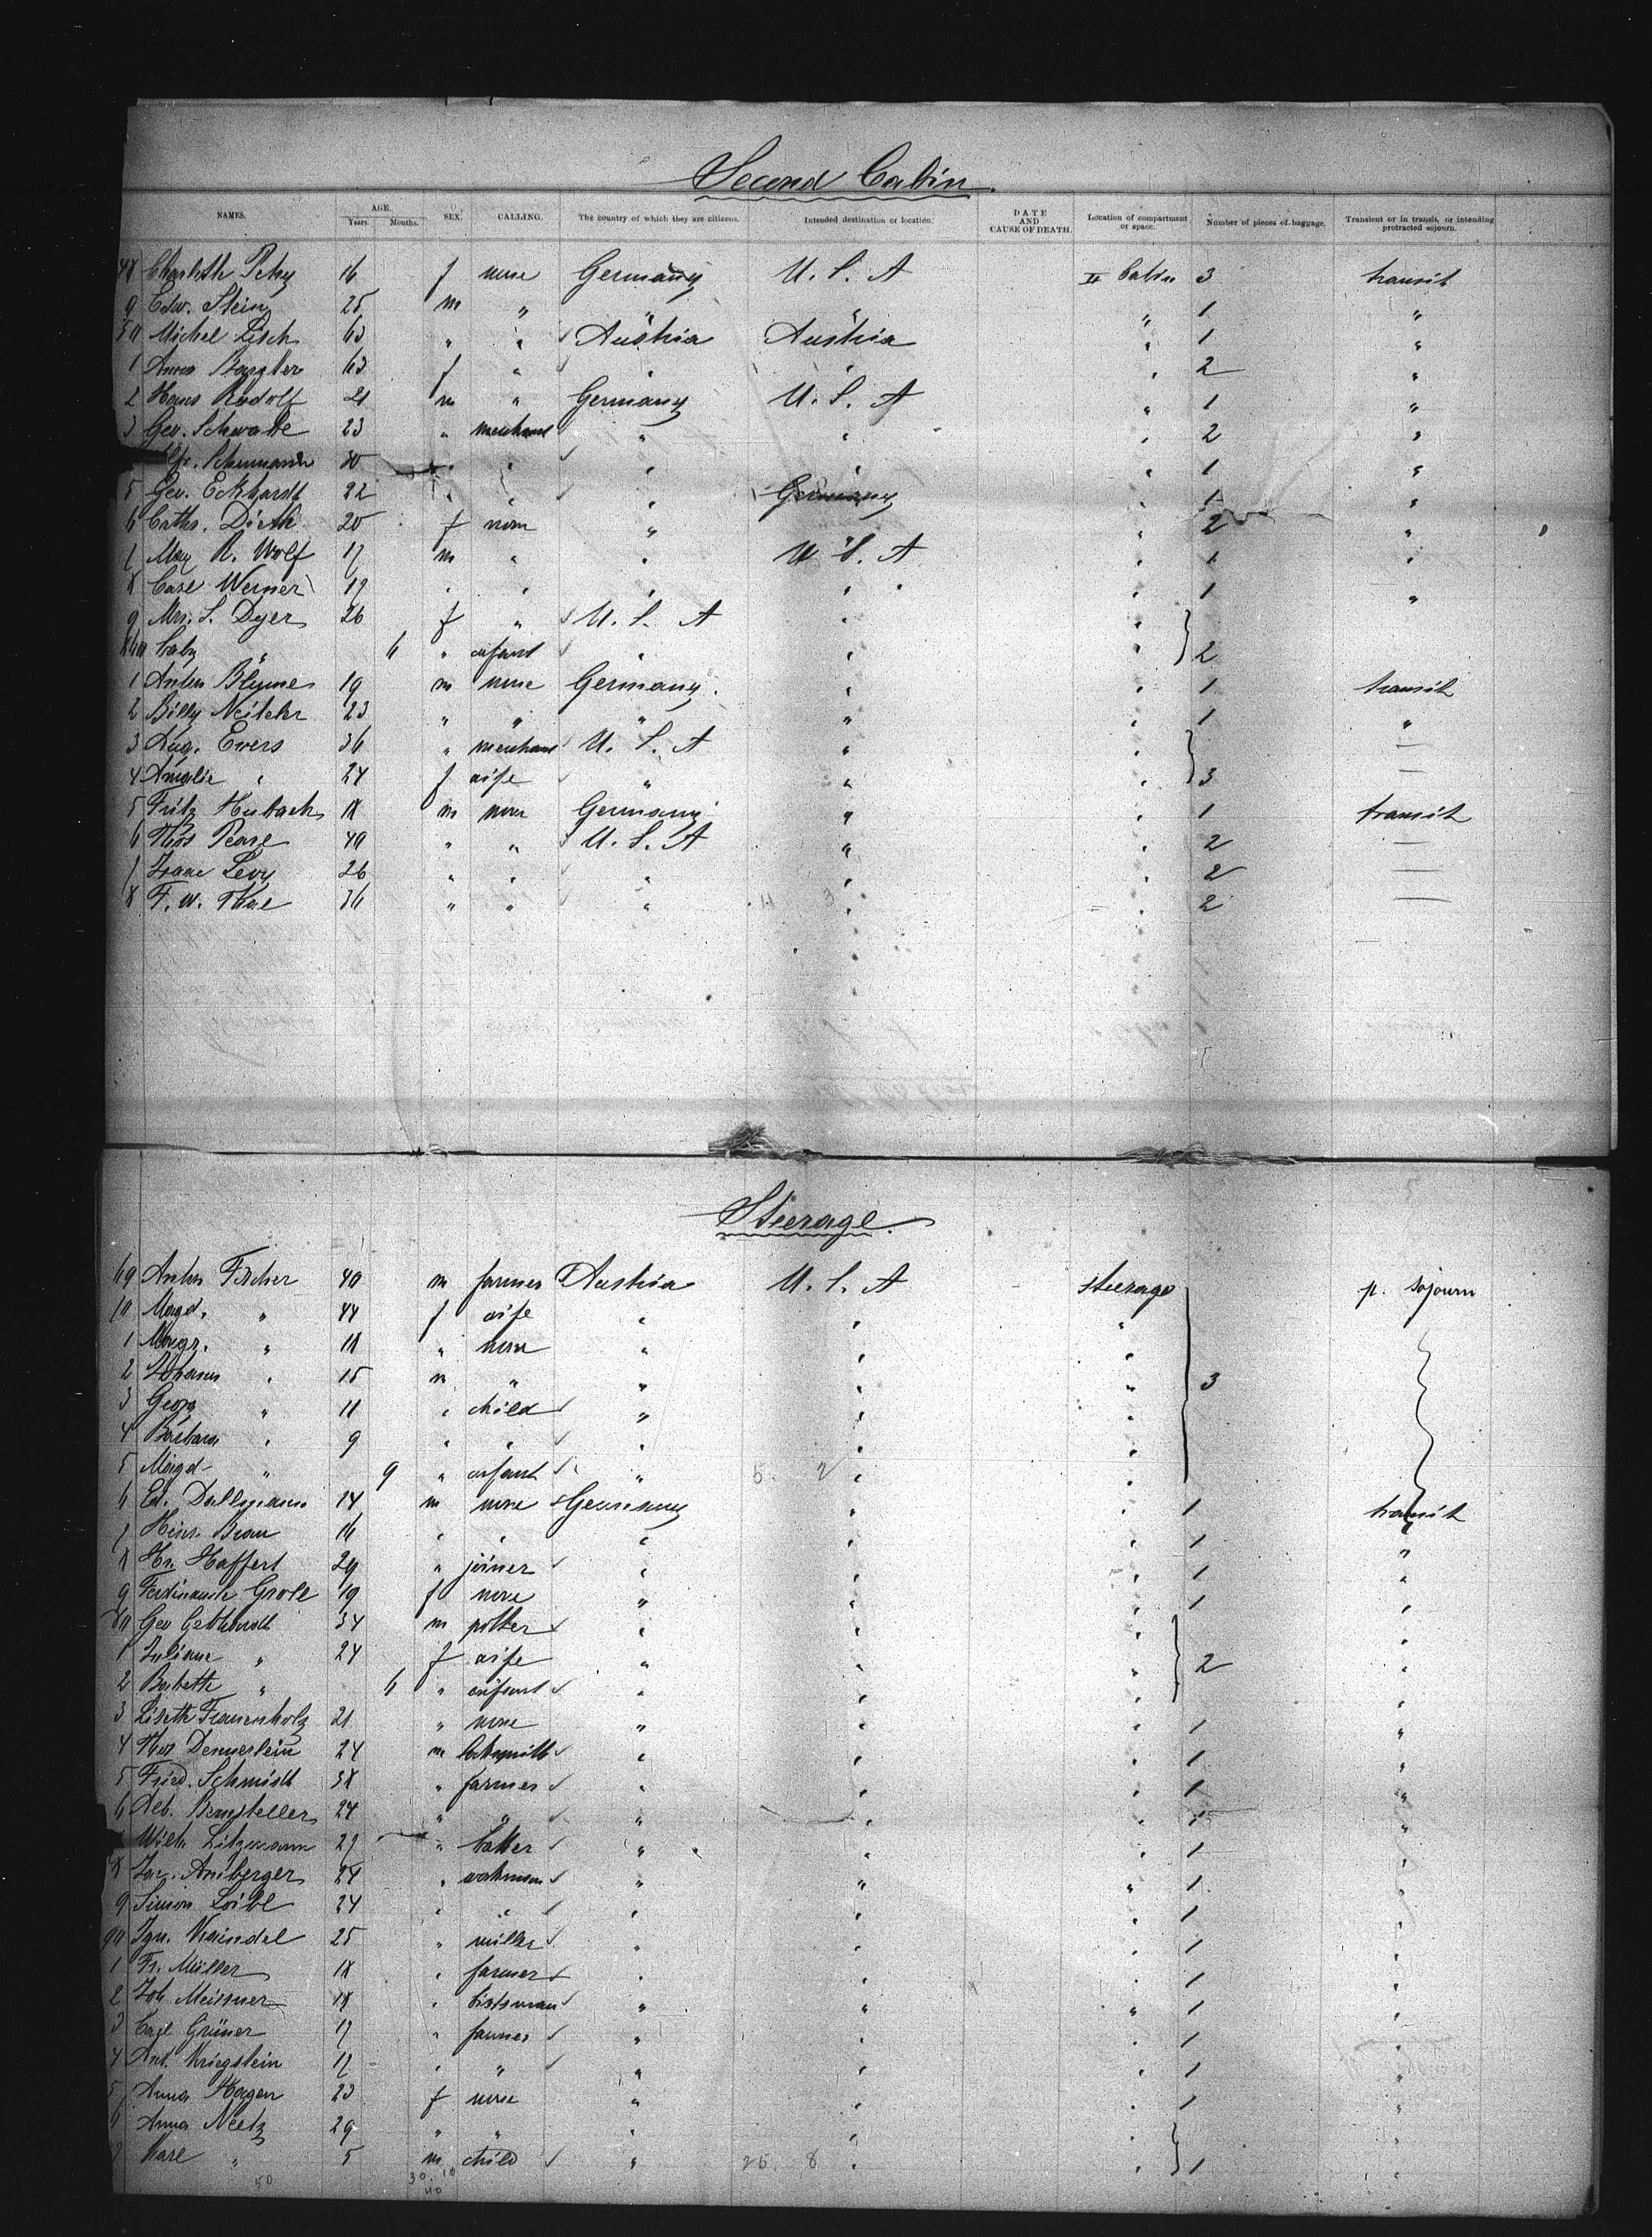 Second Cabin.
NAMES. AGE. Years. Months. SEX. CALLING. The country of which they are citizens. Intended destination or location. DATE AND CAUSE OF DEATH. Location of compartment or space. Number of pieces of baggage. Transient or in transit, or intending protracted sojourn.
48 Petry 16 f none Germany U. S. A II Cabin 3 transit
9 Edw. Stein 25 m " " " " 1 "
50 Michel Lisch 63 " " Austria Austria " 1 "
1 Anna 63 f " " " " 2 "
2 Hans Rudolf 21 m " Germany U. S. A " 1 "
3 Geo. Schwabe 23 " merchant " " " 2 "
Schumann 30 " " " " " 1 "
5 Geo. Eckhardt 22 " " " Germany " 1 "
6 Cath. 20 f none " " 2 "
7 Max R. Wolf 17 m " " U. S. A " 1 "
8 Carl Werner 19 " " " " " 1 "
9 Mrs. S. Dyer 26 f " U. S. A " "
60 baby " 6 " infant " " " 2
1 Anton Blume 19 m none Germany " " 1 transit
2 Billy 23 " " " " " 1 "
3 Aug. Evers 36 " merchant U. S. A " " —
4 Amalie " 24 f wife " " " 3 —
5 Fritz Hubach 18 m none Germany " " 1 transit
6 Thos Pearl 40 " " U. S. A " " 2 —
7 Levy 26 " " " " " 2 —
8 F. W. 36 " " " " " 2 —
Steerage.
69 Anton Fischer 40 m farmer Austria U. S. A steerage p. sojourn
70 Magd. " 44 f wife " " "
1 Margr. " 18 " none " " "
2 Johann " 15 m " " " " 3
3 Georg " 11 " child " " "
4 Barbara " 9 " " " " "
5 Magd " 9 " infant " " "
6 Ed. Dallmann 14 m none Germany " " 1 transit
7 Heinr. Braun 16 " " " " " 1 "
8 Hr. Haffert 29 " joiner " " " 1 "
9 Ferdinande Grote 19 f none " " " 1 "
80 Geo Gebhardt 34 m potter " " " "
1 Juliane " 24 f wife " " " 2 "
2 Babette " 6 " infant " " " "
3 Lisette Frauenholz 21 " none " " " 1 "
4 Thos Dennerlein 24 m locksmith " " " 1 "
5 Fried. Schmidt 38 " farmer " " " 1 "
6 24 " " " " " 1 "
Wilh. Litzmann 27 " " " " 1 "
8 Jac. Amberger 24 " workman " " " 1 "
9 Simon Loibl 24 " " " " " 1 "
90 Ign. Kaindel 25 " miller " " " 1 "
1 Fr. Müller 18 " farmer " " " 1 "
2 Joh Meissner 18 " " " " 1 "
3 Carl Grüner 17 " farmer " " " 1 "
4 Ant. Kriegstein 17 " " " " " 1 "
5 Anna Hagen 23 f none " " " 1 "
6 Anna Neetz 29 " " " " " "
7 Karl " 5 m child " " " 1 "